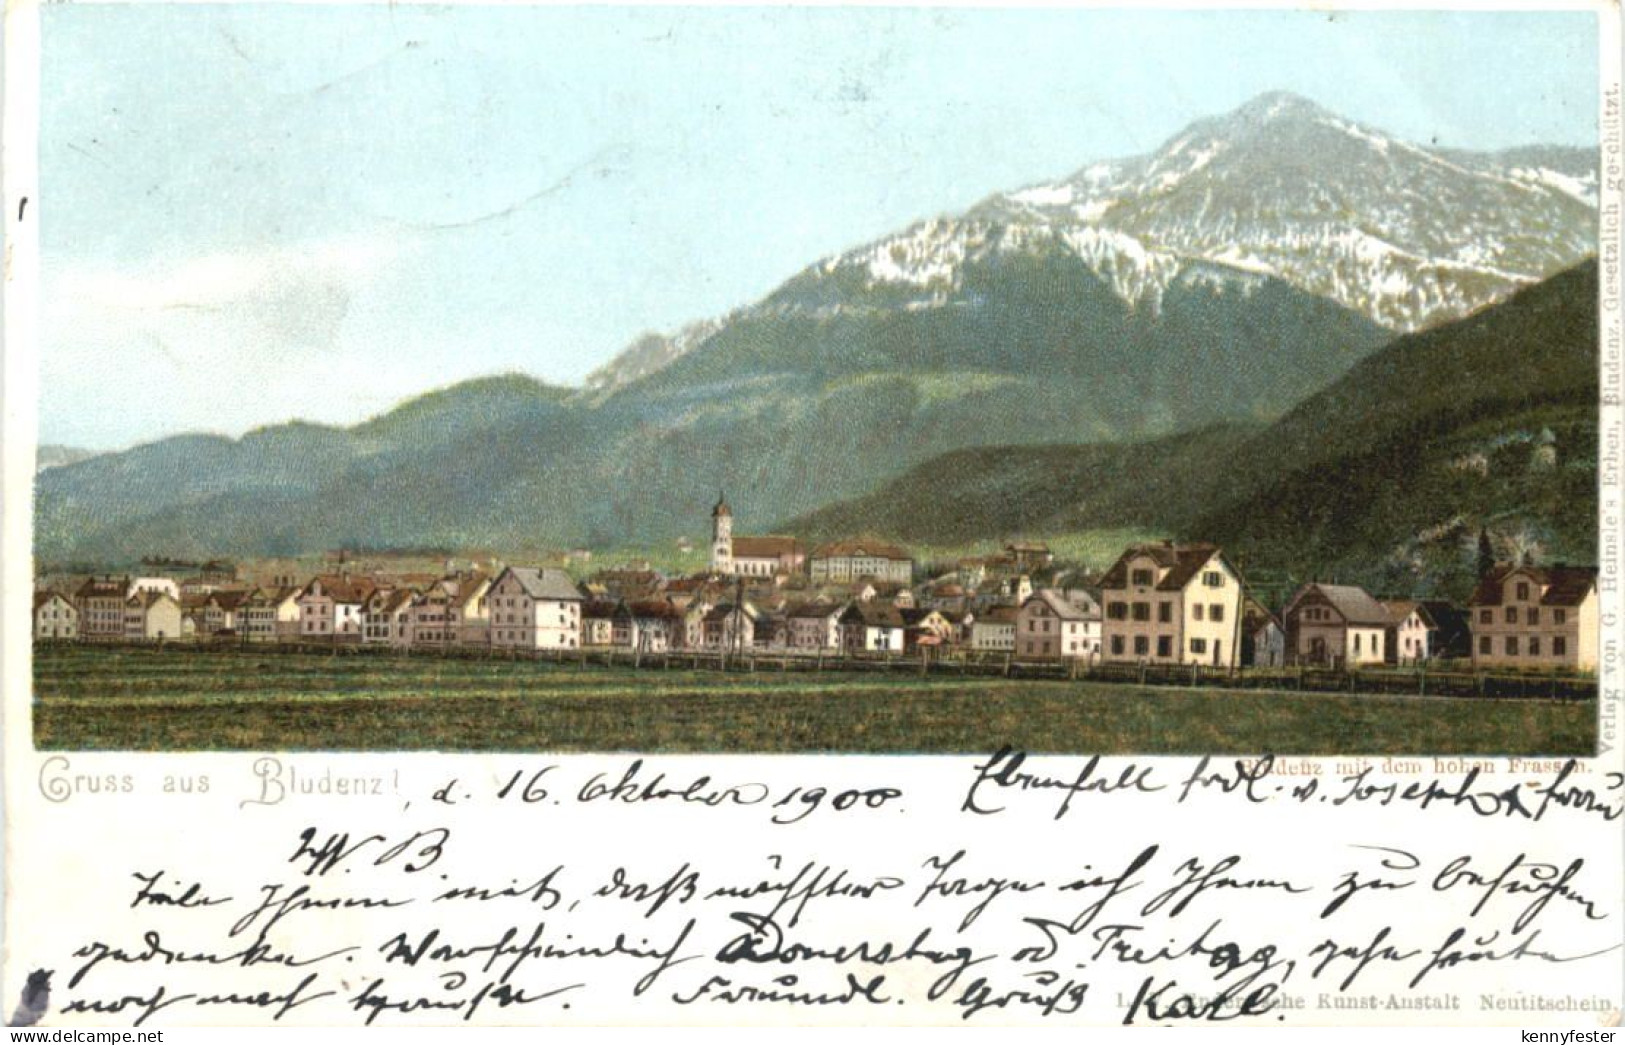 Gruss aus Bludenz!, d. 16. Oktober 1900.
Bludenz mit dem hohen Frassen.
Ebenfall frdl. v. Joseph & Frau
W. B.
Teile Ihnen mit, daß nächster Tage ich Ihnen zu besuchen
gedenke. Warscheinlich Donerstag od. Freitag, gehe heute
noch nach Hause. Freundl. Gruß Karl.
Verlag von G. Heinsle's Erben, Bludenz. Gesetzlich geschützt.
Kunst-Anstalt Neutitschein.
kennyfester